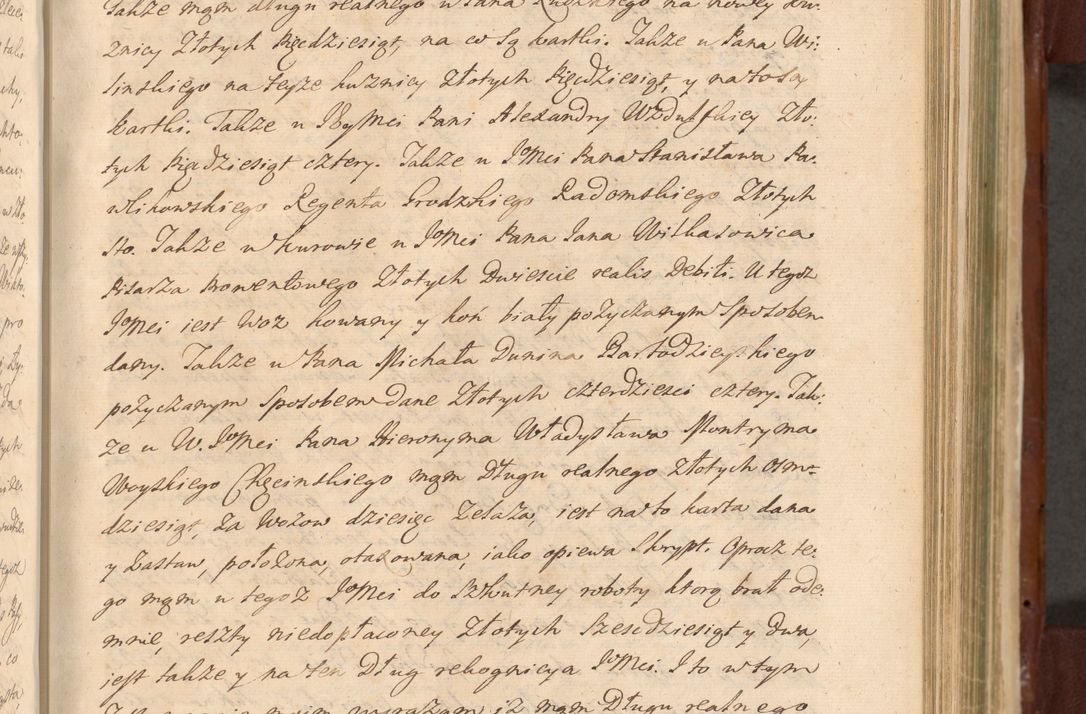 Także mam długu realnego u Pana Rudzkiego na nowey ku:
znicy Złotych Pięćdziesiąt, na co są kartki. Także u Pana Wi:
linskiego na teyże kuznicy Złotych Pięćdziesiąt, y na to są
kartki. Także u JEyMci Pani Alexandry Wzdulskiey Zło:
tych Piędziesiąt cztery. Także u JoMci Pana Stanisława Pa:
wlikowskiego Regenta Grodzkiego Radomskiego Złotych
sto. Także w Kurowie u JoMci Pana Jana Witkasowica
Pisarza Prowentowego Złotych Dwiescie realis Debiti. U tegoż
JoMci iest Woz kowany y koń biały pożyczanym Sposobem
dany. Także u Pana Michała Dunina Bartodzieyskiego
pożyczanym Sposobem dane Złotych czterdziesci cztery. Tak:
że u W. JoMci Pana Hieronyma Władysława Montryma
Woyskiego Chęcinskiego mam Długu realnego Złotych Osm:
dziesiąt, Za Wozow dziesięc Zelaza, iest na to karta dana
y Zastaw, położona, otaxowana, iako opiewa Skrypt. Oprocz te:
go mam u tegoż JoMci do Szkutney roboty ktorą brał ode:
mnie, reszty niedopłaconey Złotych Szescdziesiąt y dwa,
jest także y na ten Dług rekognicya JoMci. I to w tym
moim wyrażam iż mam Długu realnego